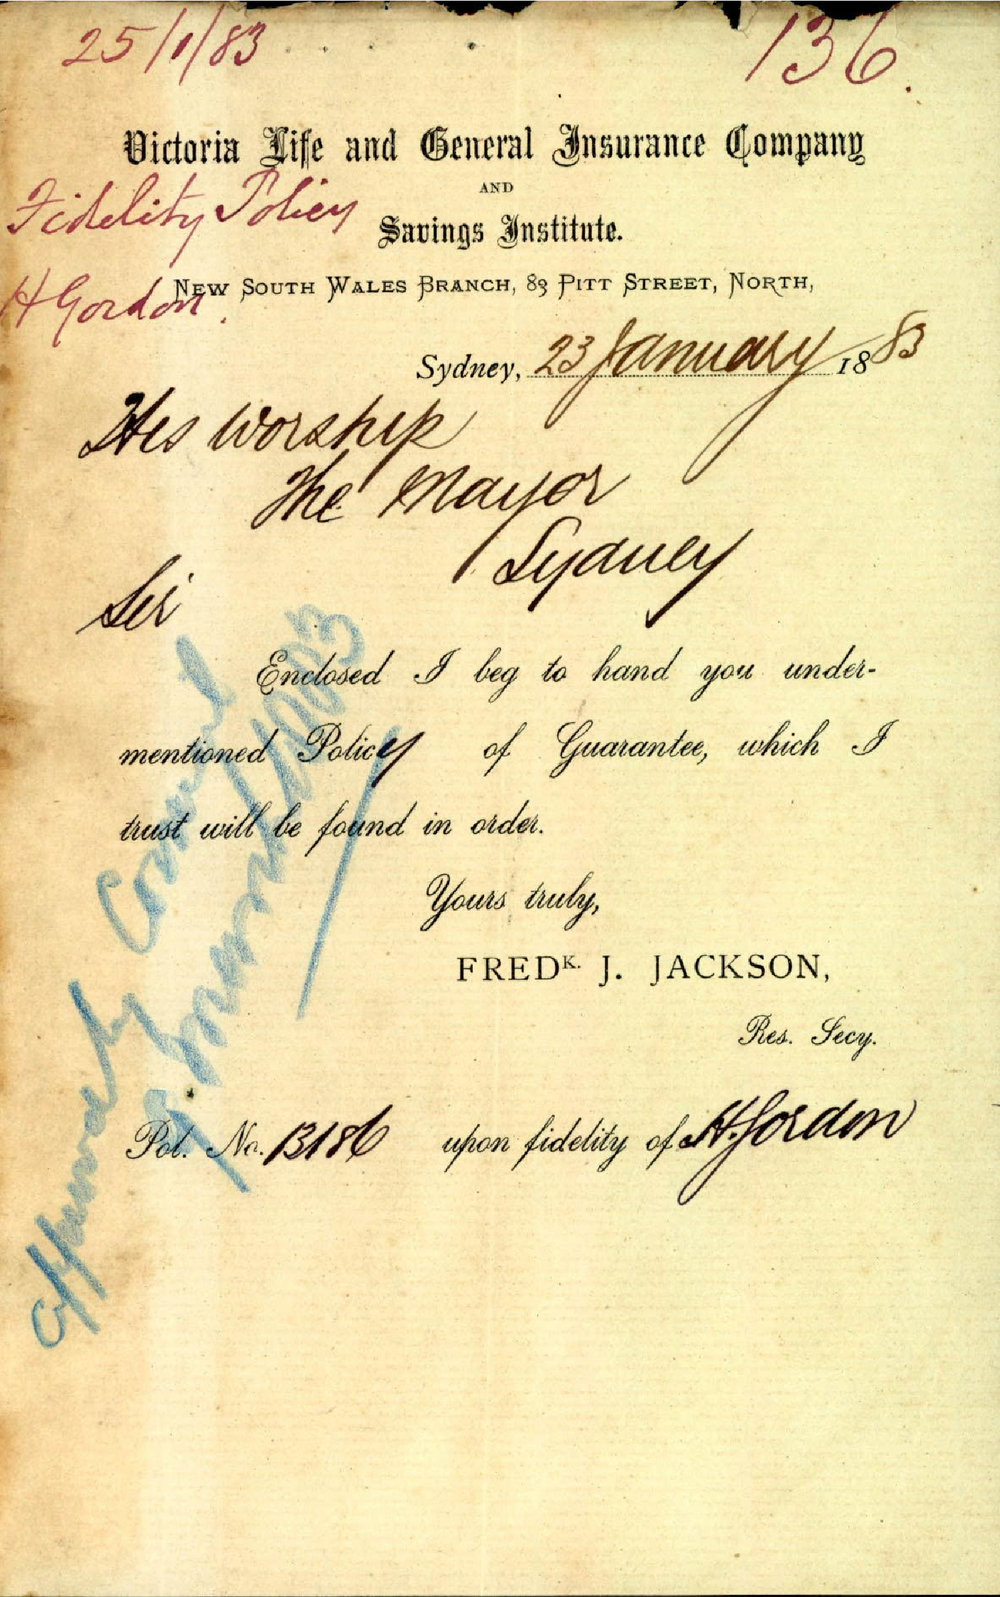 25/1/83
136.
Victoria Life and General Insurance Company
AND
Fidelity Policy
Savings Institute.
H Gordon.
NEW SOUTH WALES BRANCH, 83 PITT STREET, NORTH,
Sydney, 23 January 1883
His Worship
The Mayor
Sydney
Sir
Enclosed I beg to hand you under-
mentioned Policy of Guarantee, which I
trust will be found in order.
Yours truly,
FREDK. J. JACKSON,
Res. Secy.
Pol. No. B186 upon fidelity of H. Gordon
Approved by Council